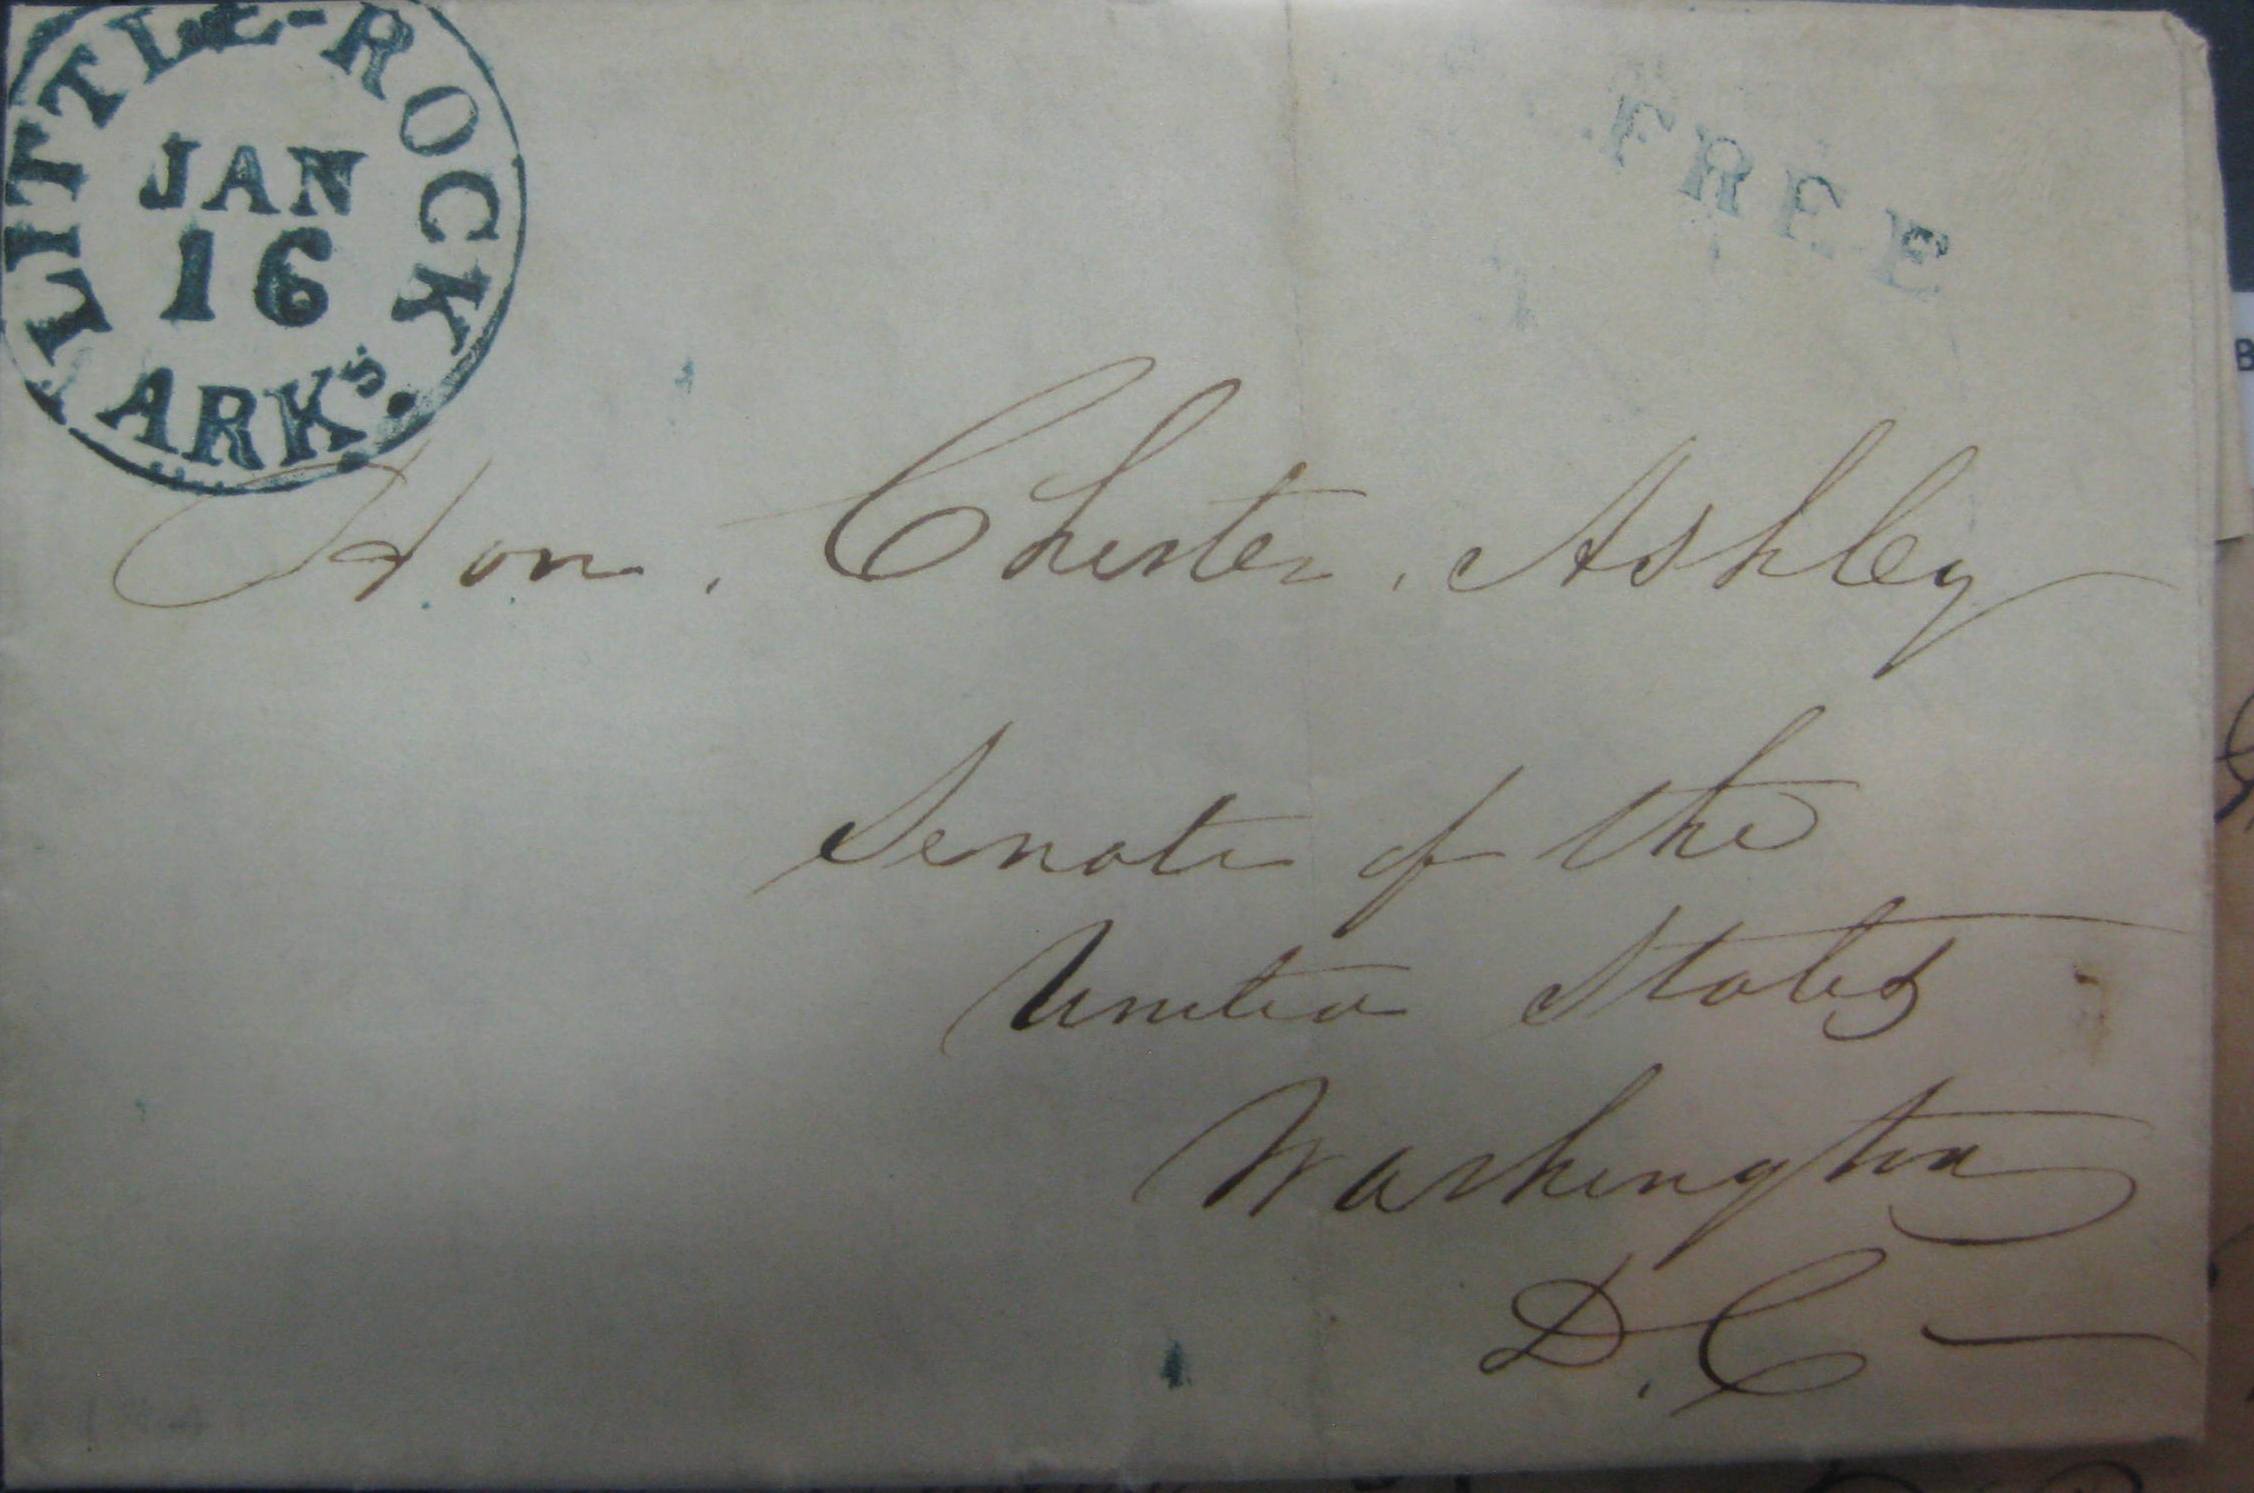 LITTLE-ROCK
JAN
16
ARKs.
FREE
Hon. Chester. Ashley
Senate of the
United States
Washington
D.C
B